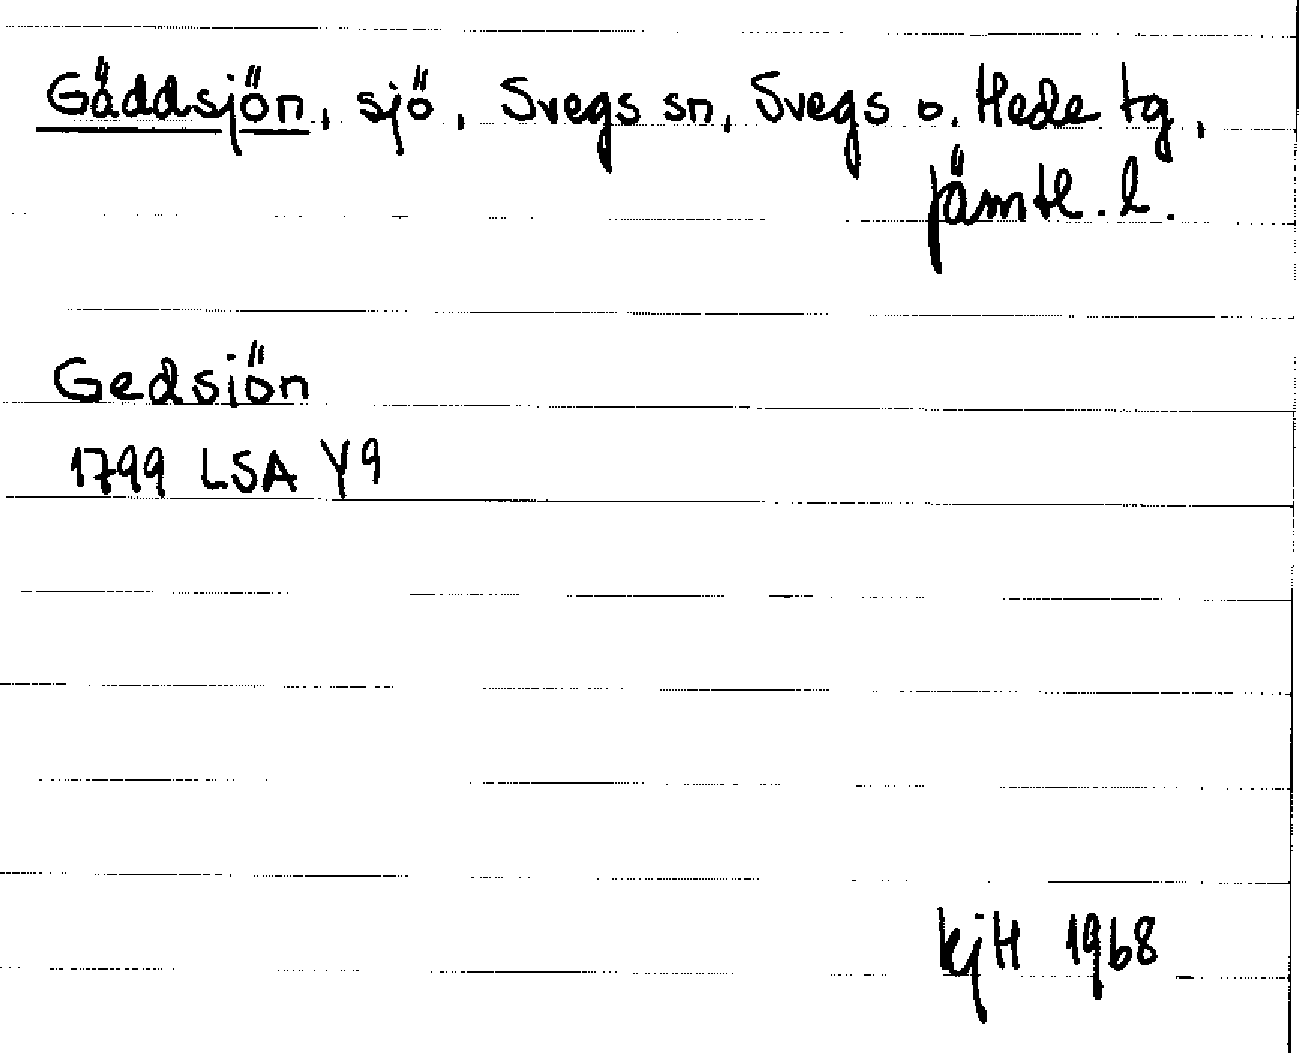 Gäddsjön, sjö, Svegs sn, Svegs o. Hede tg,
Jämtl. l.
Gedsiön
1799 LSA Y9
KjH 1968